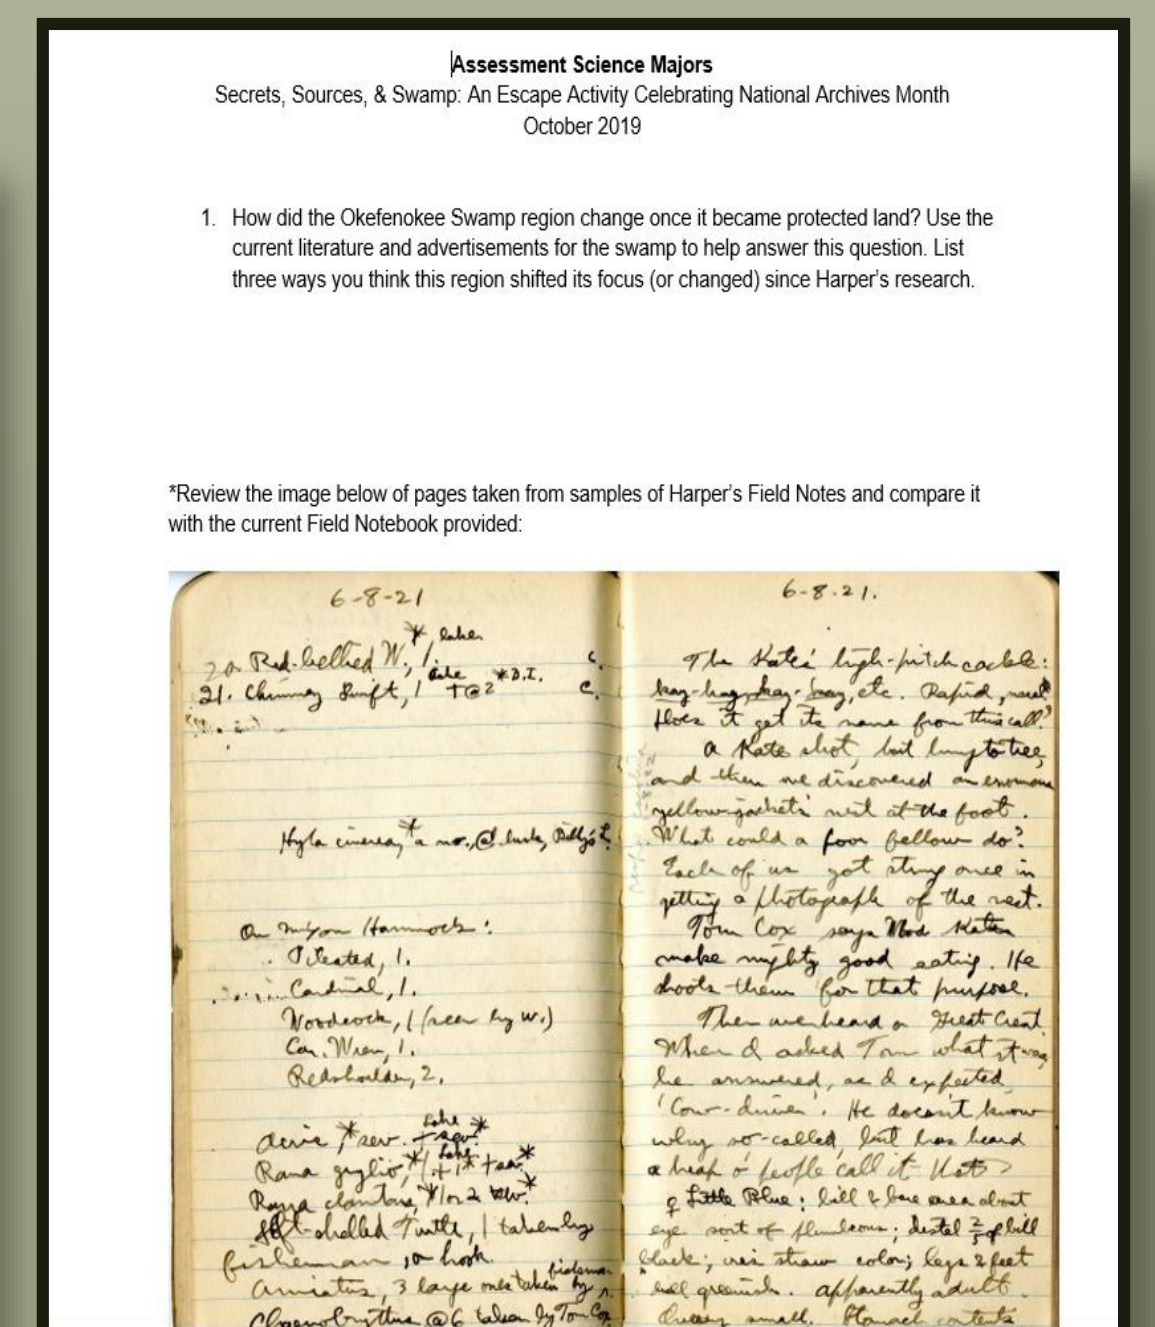 Assessment Science Majors
Secrets, Sources, & Swamp: An Escape Activity Celebrating National Archives Month
October 2019
1. How did the Okefenokee Swamp region change once it became protected land? Use the
current literature and advertisements for the swamp to help answer this question. List
three ways you think this region shifted its focus (or changed) since Harper's research.
*Review the image below of pages taken from samples of Harper's Field Notes and compare it
with the current Field Notebook provided:
6-8-21
* lake
20. Red-bellied W., 1. c.
21. Chimney Swift, 1 +@2 *B.I. c.
Hyla cinerea,* a no., @ dusk, Billy's
On Mixon Hammock:
Pileated, 1.
Cardinal, 1.
Woodcock, 1 (seen by W.)
Car. Wren, 1.
Redshoulder, 2.
Lake
Acris,* sev.
Rana grylio,*
Rana clamitans,* 1 or 2
Soft-shelled Turtle, 1 taken by
fisherman, on hook.
Amiatus, 3 large ones taken by fisherman
Chaenobryttus @6 taken by Tom Cox
6-8-21.
The Kate's high-pitch cackle:
kay-kay-kay-kay, etc. Rapid,
Does it get its name from this call?
A Kate shot, but hung to tree,
and then we discovered an enormous
yellow-jackets' nest at the foot.
What could a poor fellow do?
Each of us got stung once in
getting a photograph of the nest.
Tom Cox says Wood Kates
make mighty good eating. He
shoots them for that purpose.
Then we heard a Great Crest.
When I asked Tom what it was,
he answered, as I expected,
'Cow-driver'. He doesn't know
why so-called, but has heard
a heap o' people call it that
♀ Little Blue: bill & bare area about
eye sort of plumbeous; distal 2/5 of bill
black; iris straw color; legs & feet
dull greenish. Apparently adult.
Ovary small. Stomach contents